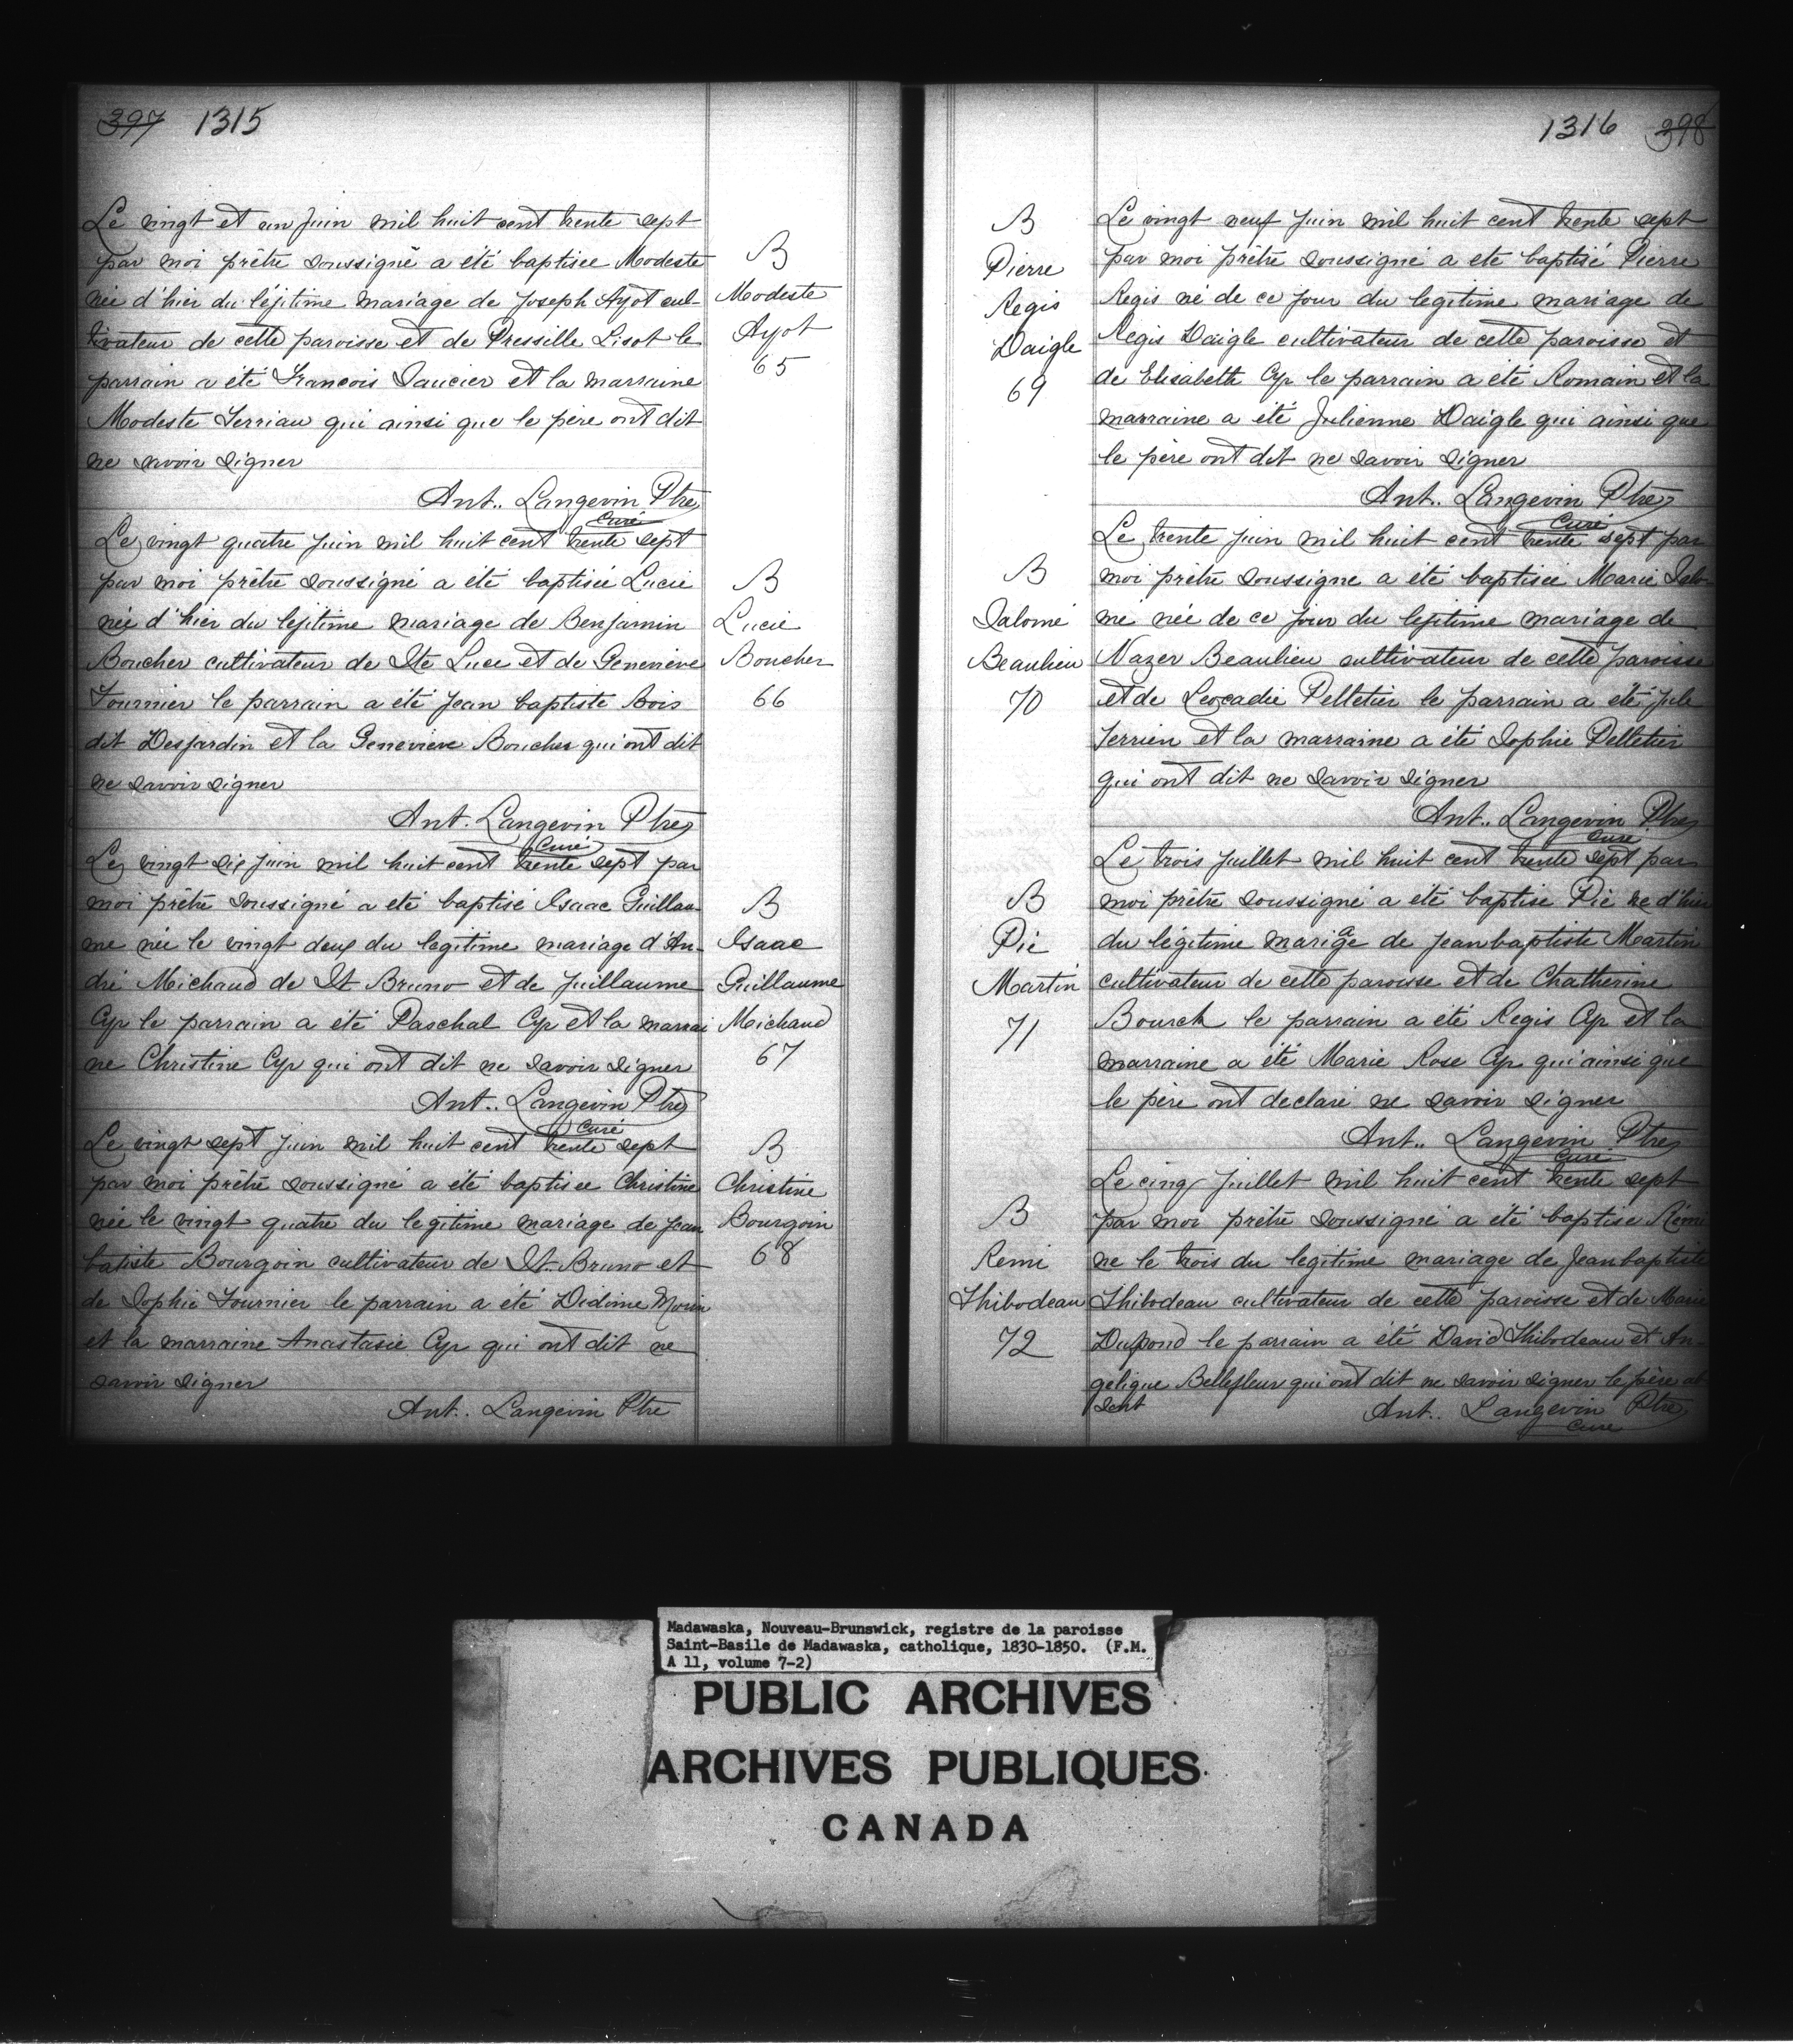 397 1315
Le vingt et un juin mil huit cent trente sept
par moi prêtre soussigné a été baptisée Modeste
née d'hier du léjitime mariage de Joseph Ayot cul-
tivateur de cette paroisse et de Pressille Lisot le
parrain a été Francois Saucier et la marraine
Modeste Terriau qui ainsi que le père ont dit
ne savoir signer
Ant.. Langevin Ptre
Curé
B
Modeste
Ayot
65
Le vingt quatre juin mil huit cent trente sept
par moi prêtre soussigné a été baptisée Lucie
née d'hier du lejitime mariage de Benjamin
Boucher cultivateur de Ste Luce et de Geneviève
Fournier le parrain a été Jean baptiste Bois
dit Desjardin et la Geneviève Boucher qui ont dit
ne savoir signer
Ant. Langevin Ptre
Curé
B
Lucie
Boucher
66
Le vingt six juin mil huit cent trente sept par
moi prêtre soussigné a été baptisé Isaac Guillau-
me née le vingt deux du legitime mariage d'An-
dré Michaud de St Bruno et de Juillaume
Cyr le parrain a été Paschal Cyr et la marrai
ne Christine Cyr qui ont dit ne savoir signer
Ant.. Langevin Ptre
Curé
B
Isaac
Guillaume
Michaud
67
Le vingt sept juin mil huit cent trente sept
par moi prêtre soussigné a été baptisee Christine
née le vingt quatre du legitime mariage de Jean
batiste Bourgoin cultivateur de St. Bruno et
de Sophie Fournier le parrain a été Didime Morin
et la marraine Anastasie Cyr qui ont dit ne
savoir signer
Ant.. Langevin Ptre
B
Christine
Bourgoin
68
1316 398
B
Pierre
Regis
Daigle
69
Le vingt neuf juin mil huit cent trente sept
par moi prêtre soussigné a ete baptisé Pierre
Regis né de ce jour du legitime mariage de
Regis Daigle cultivateur de cette paroisse et
de Elisabeth Cyr le parrain a été Romain et la
marraine a été Julienne Daigle qui ainsi que
le père ont dit ne savoir signer
Ant.. Langevin Ptre
Curé
B
Salomé
Beaulieu
70
Le trente juin mil huit cent trente sept par
moi prêtre soussigne a été baptisée Marie Salo-
mé née de ce jour du lejitime mariage de
Nazer Beaulieu cultivateur de cette paroisse
et de Leocadie Pelletier le parrain a été Jule
Terrien et la marraine a été Sophie Pelletier
qui ont dit ne savoir signer
Ant.. Langevin Ptre
Curé
B
Pie
Martin
71
Le trois Juillet mil huit cent trente sept par
moi prêtre soussigné a été baptise Pie né d'hier
du légitime mariage de Jean baptiste Martin
cultivateur de cette paroisse et de Chatherine
Bourck le parrain a été Regis Cyr et la
marraine a été Marie Rose Cyr qui ainsi que
le père ont declaré ne savoir signer
Ant.. Langevin Ptre
Curé
B
Remi
Thibodeau
72
Le cinq Juillet mil huit cent trente sept
par moi prêtre soussigné a été baptise Rémi
ne le trois du legitime mariage de Jean baptiste
Thibodeau cultivateur de cette paroisse et de Marie
Dupond le parrain a été David Thibodeau et An-
gelique Bellefleur qui ont dit ne savoir signer le père ab
sent
Ant.. Langevin Ptre
Cure
Madawaska, Nouveau-Brunswick, registre de la paroisse
Saint-Basile de Madawaska, catholique, 1830-1850. (F.M.
A 11, volume 7-2)
PUBLIC ARCHIVES
ARCHIVES PUBLIQUES
CANADA